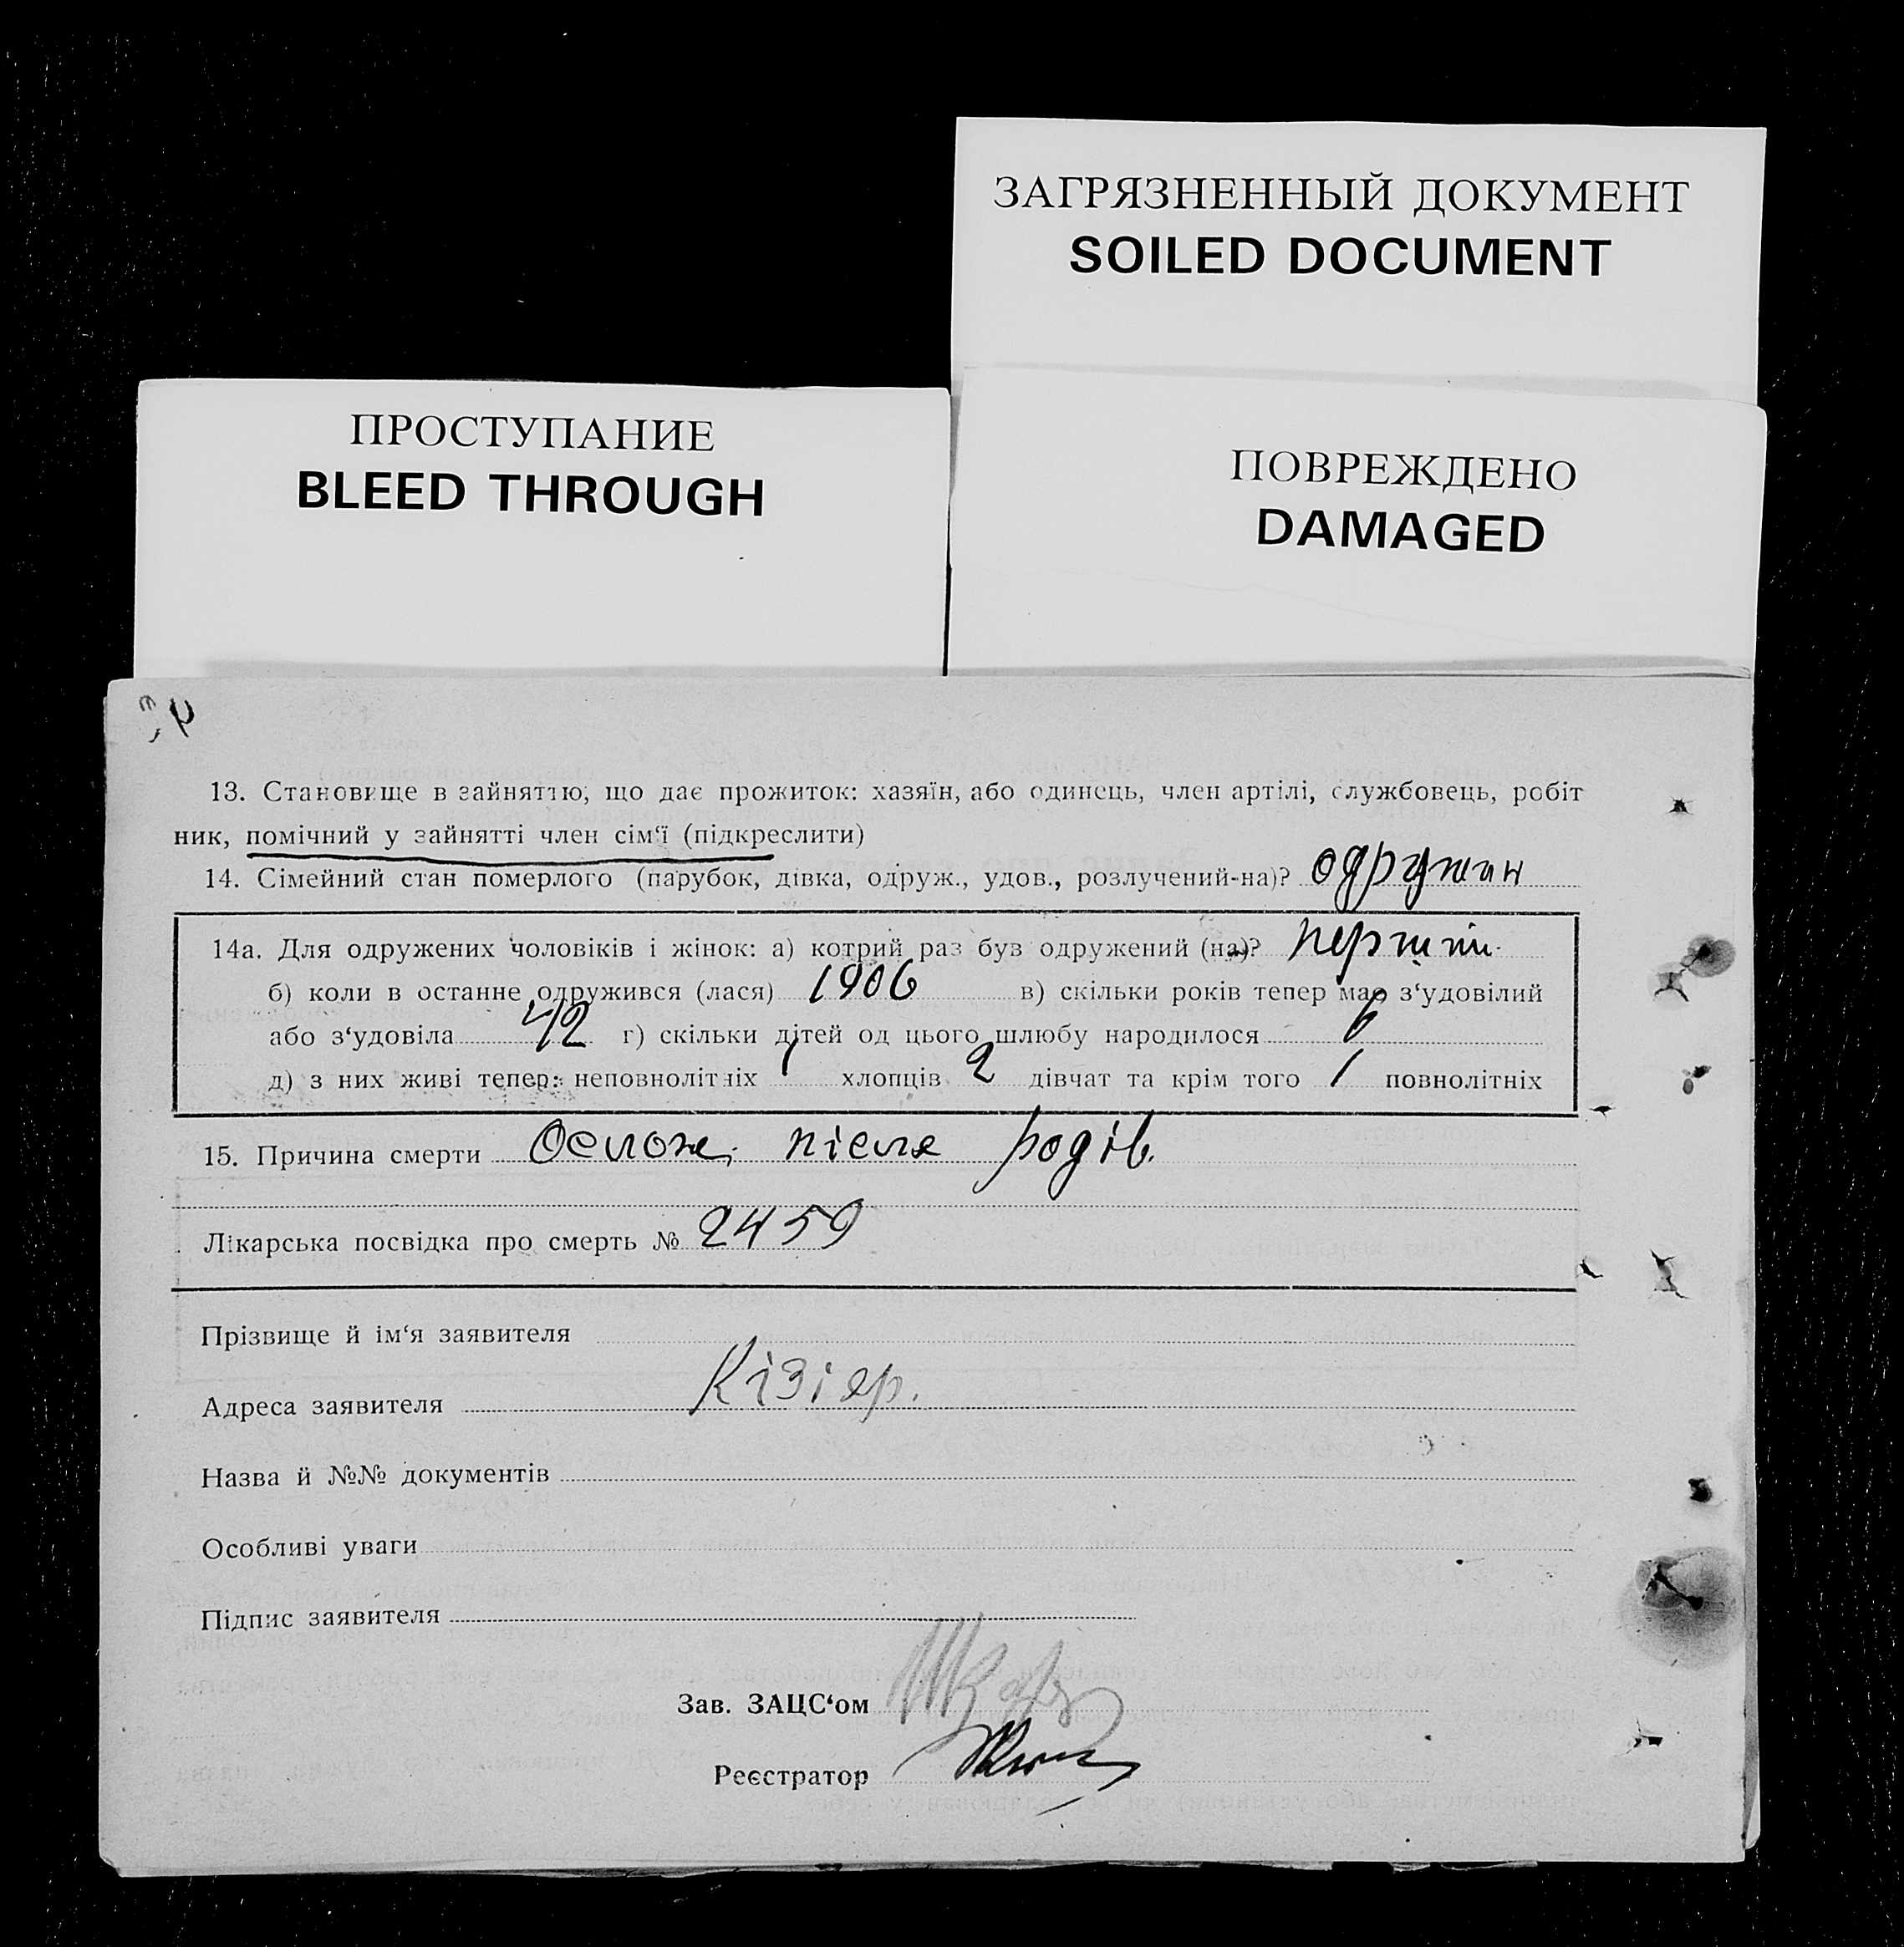 ЗАГРЯЗНЕННЫЙ ДОКУМЕНТ
SOILED DOCUMENT
ПРОСТУПАНИЕ
BLEED THROUGH
ПОВРЕЖДЕНО
DAMAGED
13. Становище в зайняттю, що дає прожиток: хазяїн, або одинець, член артілі, службовець, робіт
ник, помічний у зайнятті член сім‘ї (підкреслити)
14. Сімейний стан померлого (парубок, дівка, одруж., удов., розлучений-на)? одружан
14а. Для одружених чоловіків і жінок: а) котрий раз був одружений (на)? перший
б) коли в останнє одружився (лася) 1906 в) скільки років тепер має з‘удовілий
або з‘удовіла 42 г) скільки дітей од цього шлюбу народилося 6
д) з них живі тепер: неповнолітніх 1 хлопців 2 дівчат та крім того 1 повнолітніх
15. Причина смерти Ослож. після родів.
Лікарська посвідка про смерть № 2459
Прізвище й ім‘я заявителя
Адреса заявителя Кізіяр.
Назва й №№ документів
Особливі уваги
Підпис заявителя
Зав. ЗАЦС‘ом
Реєстратор